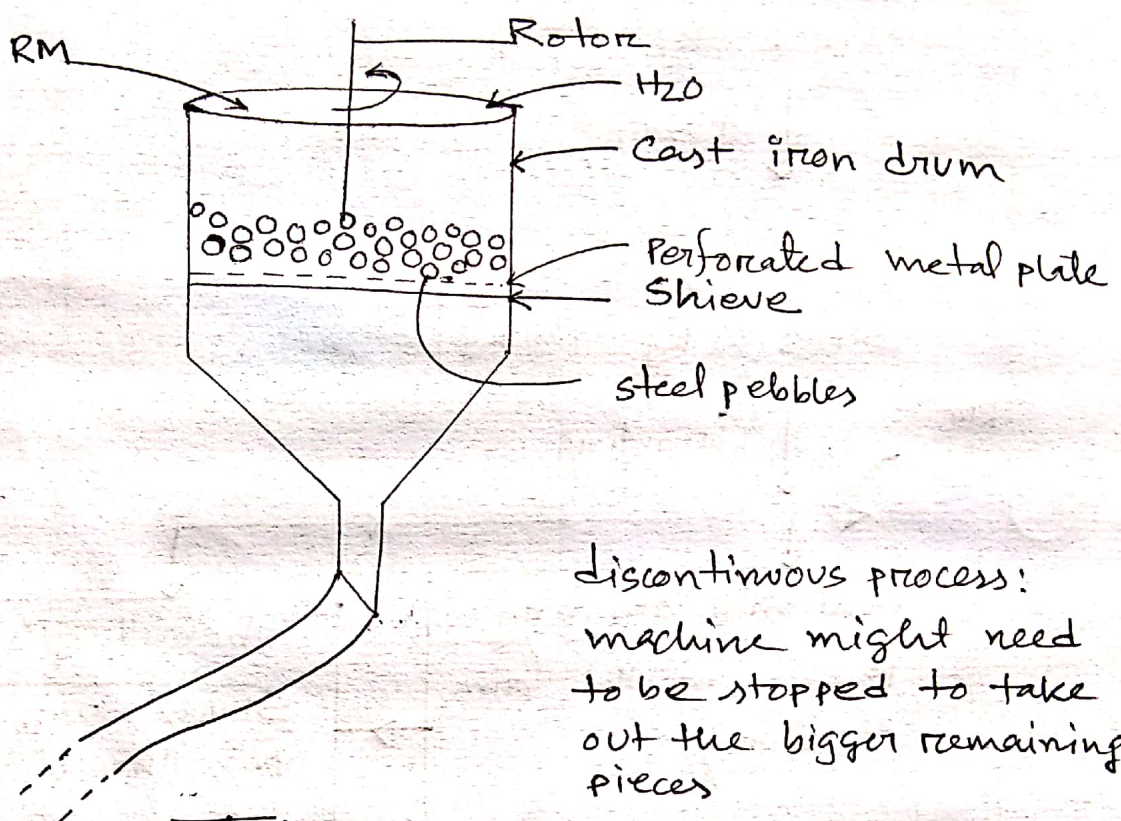 RM
Rotor
H2O
Cast iron drum
Perforated metal plate
Shieve
steel pebbles
discontinuous process:
machine might need
to be stopped to take
out the bigger remaining
pieces